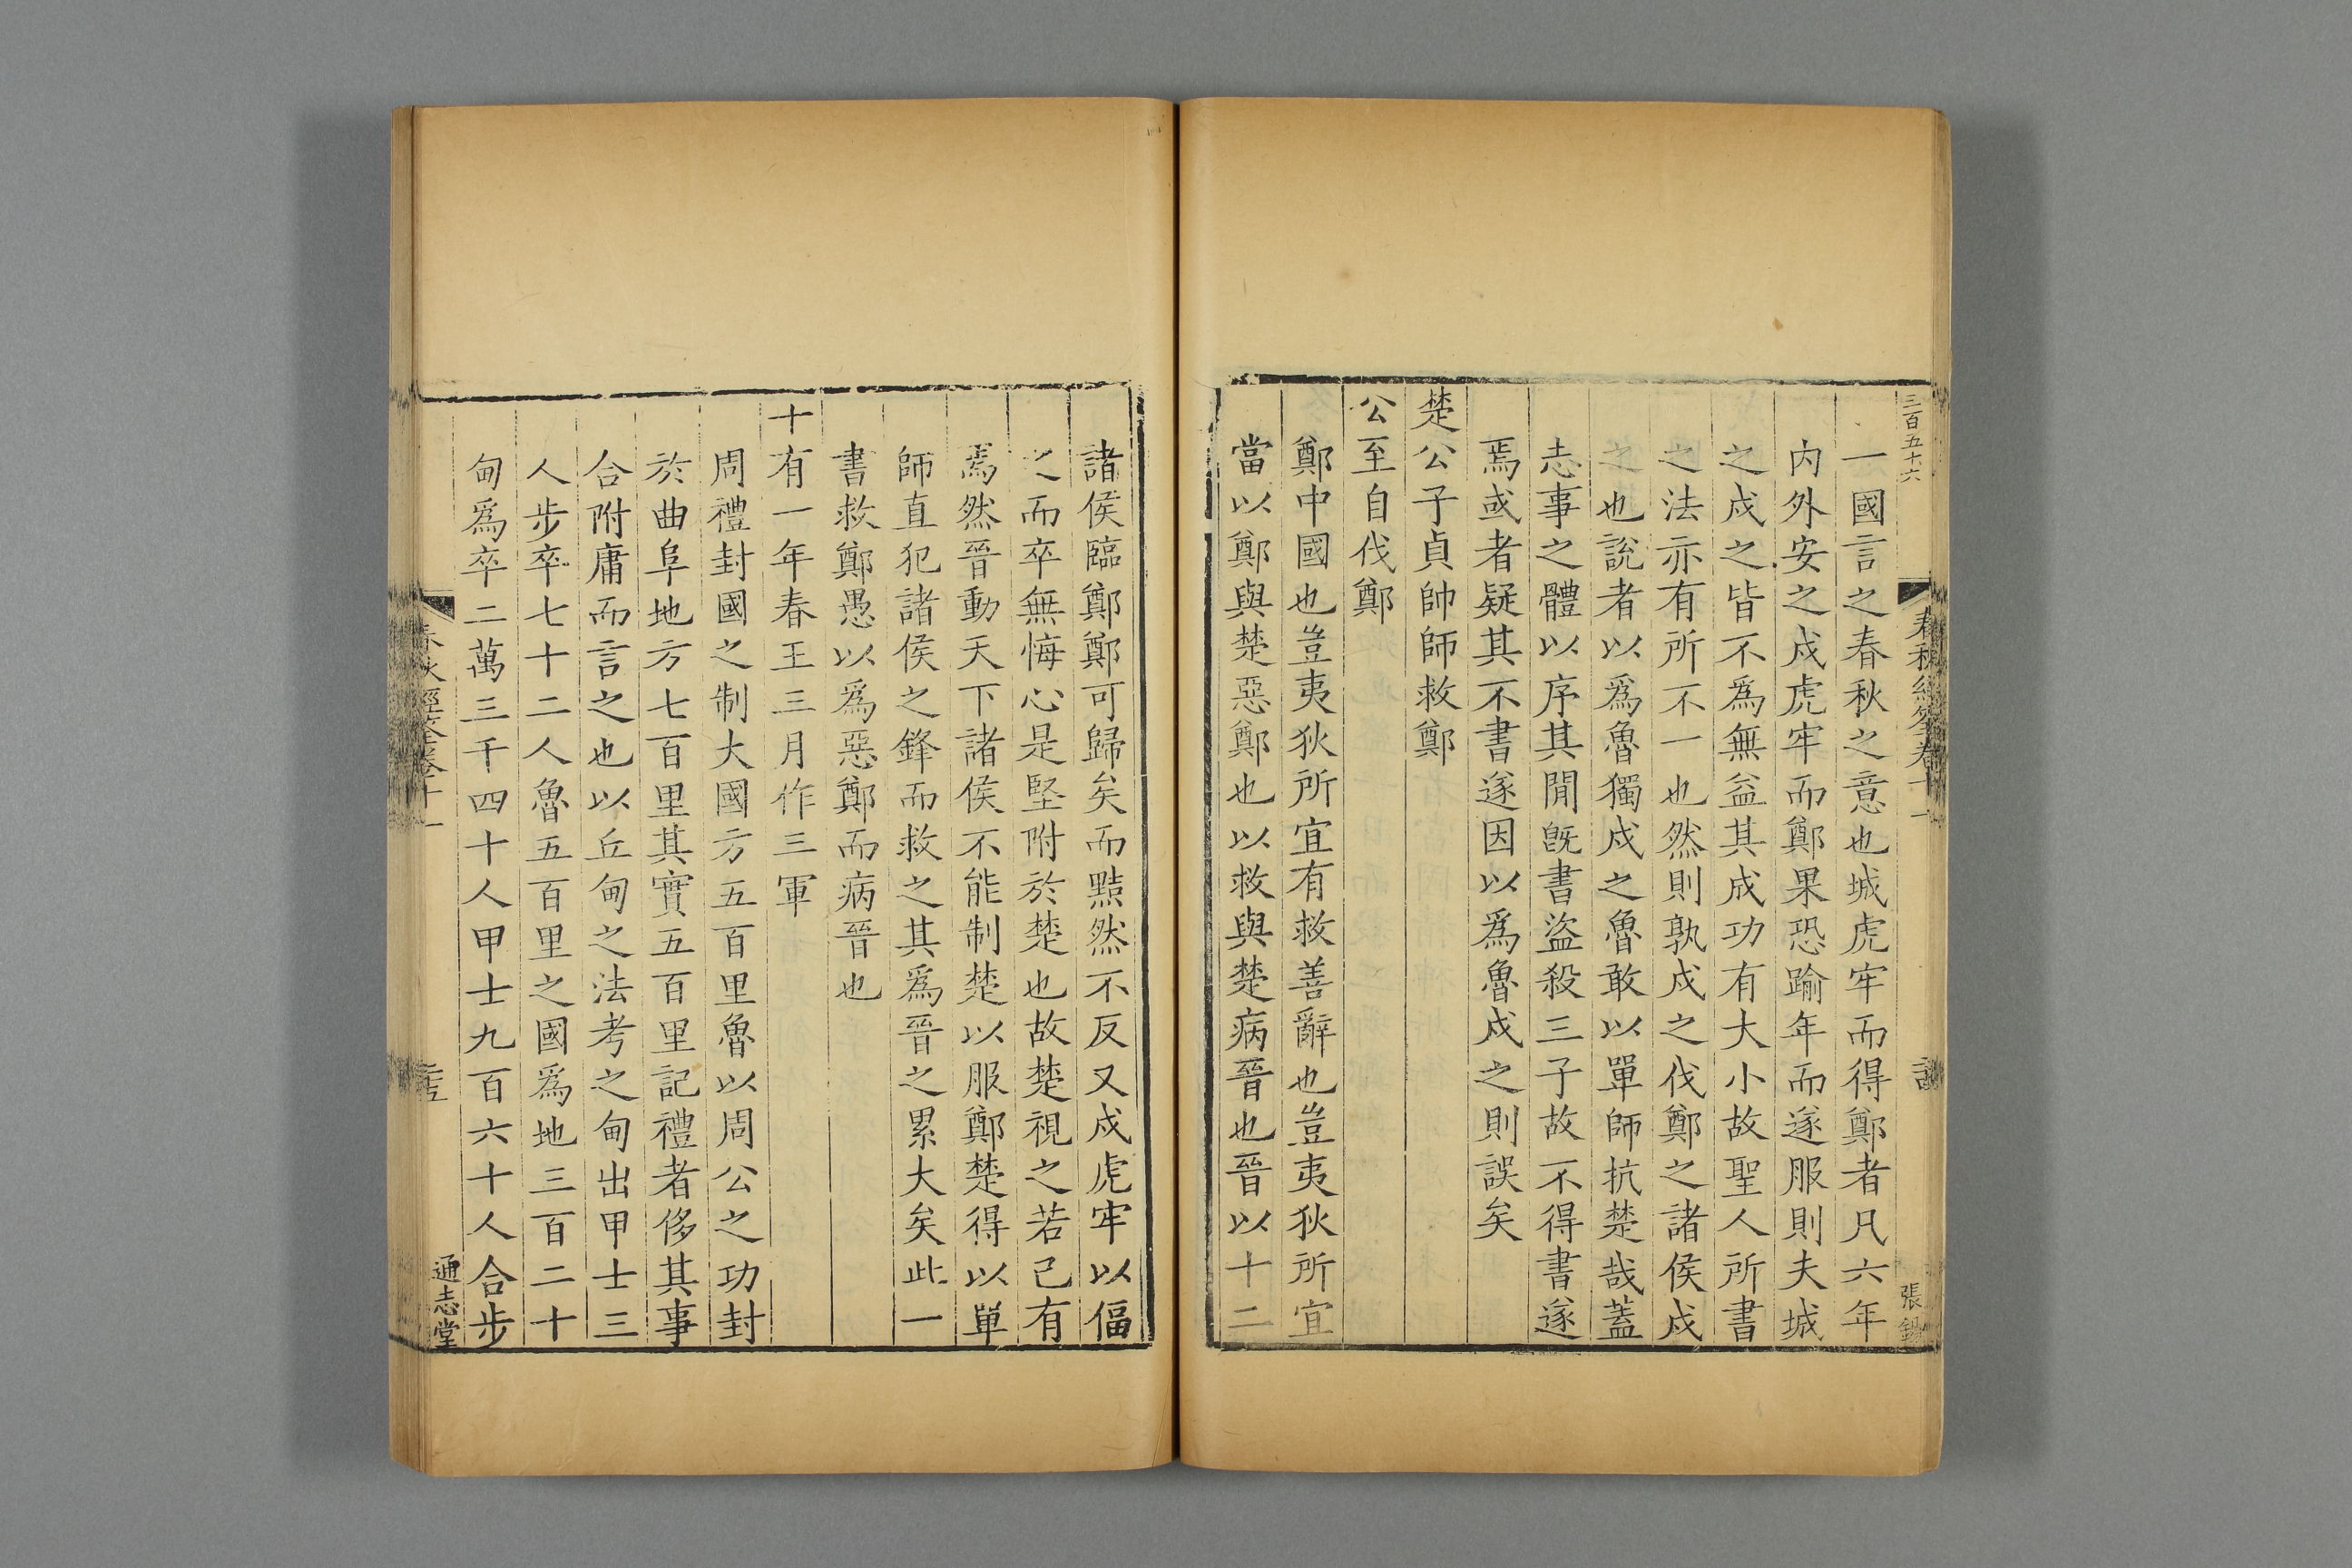 三百五十六
春秋經筌卷十一
張
一國言之春秋之意也城虎牢而得鄭者凡六年
內外安之戍虎牢而鄭果恐踰年而遂服則夫城
之戍之皆不爲無益其成功有大小故聖人所書
之法亦有所不一也然則孰戍之伐鄭之諸侯戍
之也說者以爲魯獨戍之魯敢以單師抗楚哉蓋
志事之體以序其閒旣書盜殺三子故不得書遂
焉或者疑其不書遂因以爲魯戍之則誤矣
楚公子貞帥師救鄭
公至自伐鄭
鄭中國也豈夷狄所宜有救善辭也豈夷狄所宜
當以鄭與楚惡鄭也以救與楚病晉也晉以十二
諸侯臨鄭鄭可歸矣而黠然不反又戍虎牢以偪
之而卒無悔心是堅附於楚也故楚視之若已有
焉然晉動天下諸侯不能制楚以服鄭楚得以單
師直犯諸侯之鋒而救之其爲晉之累大矣此一
書救鄭愚以爲惡鄭而病晉也
十有一年春王三月作三軍
周禮封國之制大國方五百里魯以周公之功封
於曲阜地方七百里其實五百里記禮者侈其事
合附庸而言之也以丘甸之法考之甸出甲士三
人步卒七十二人魯五百里之國爲地三百二十
甸爲卒二萬三千四十人甲士九百六十人合步
春秋經筌卷十一
通志堂